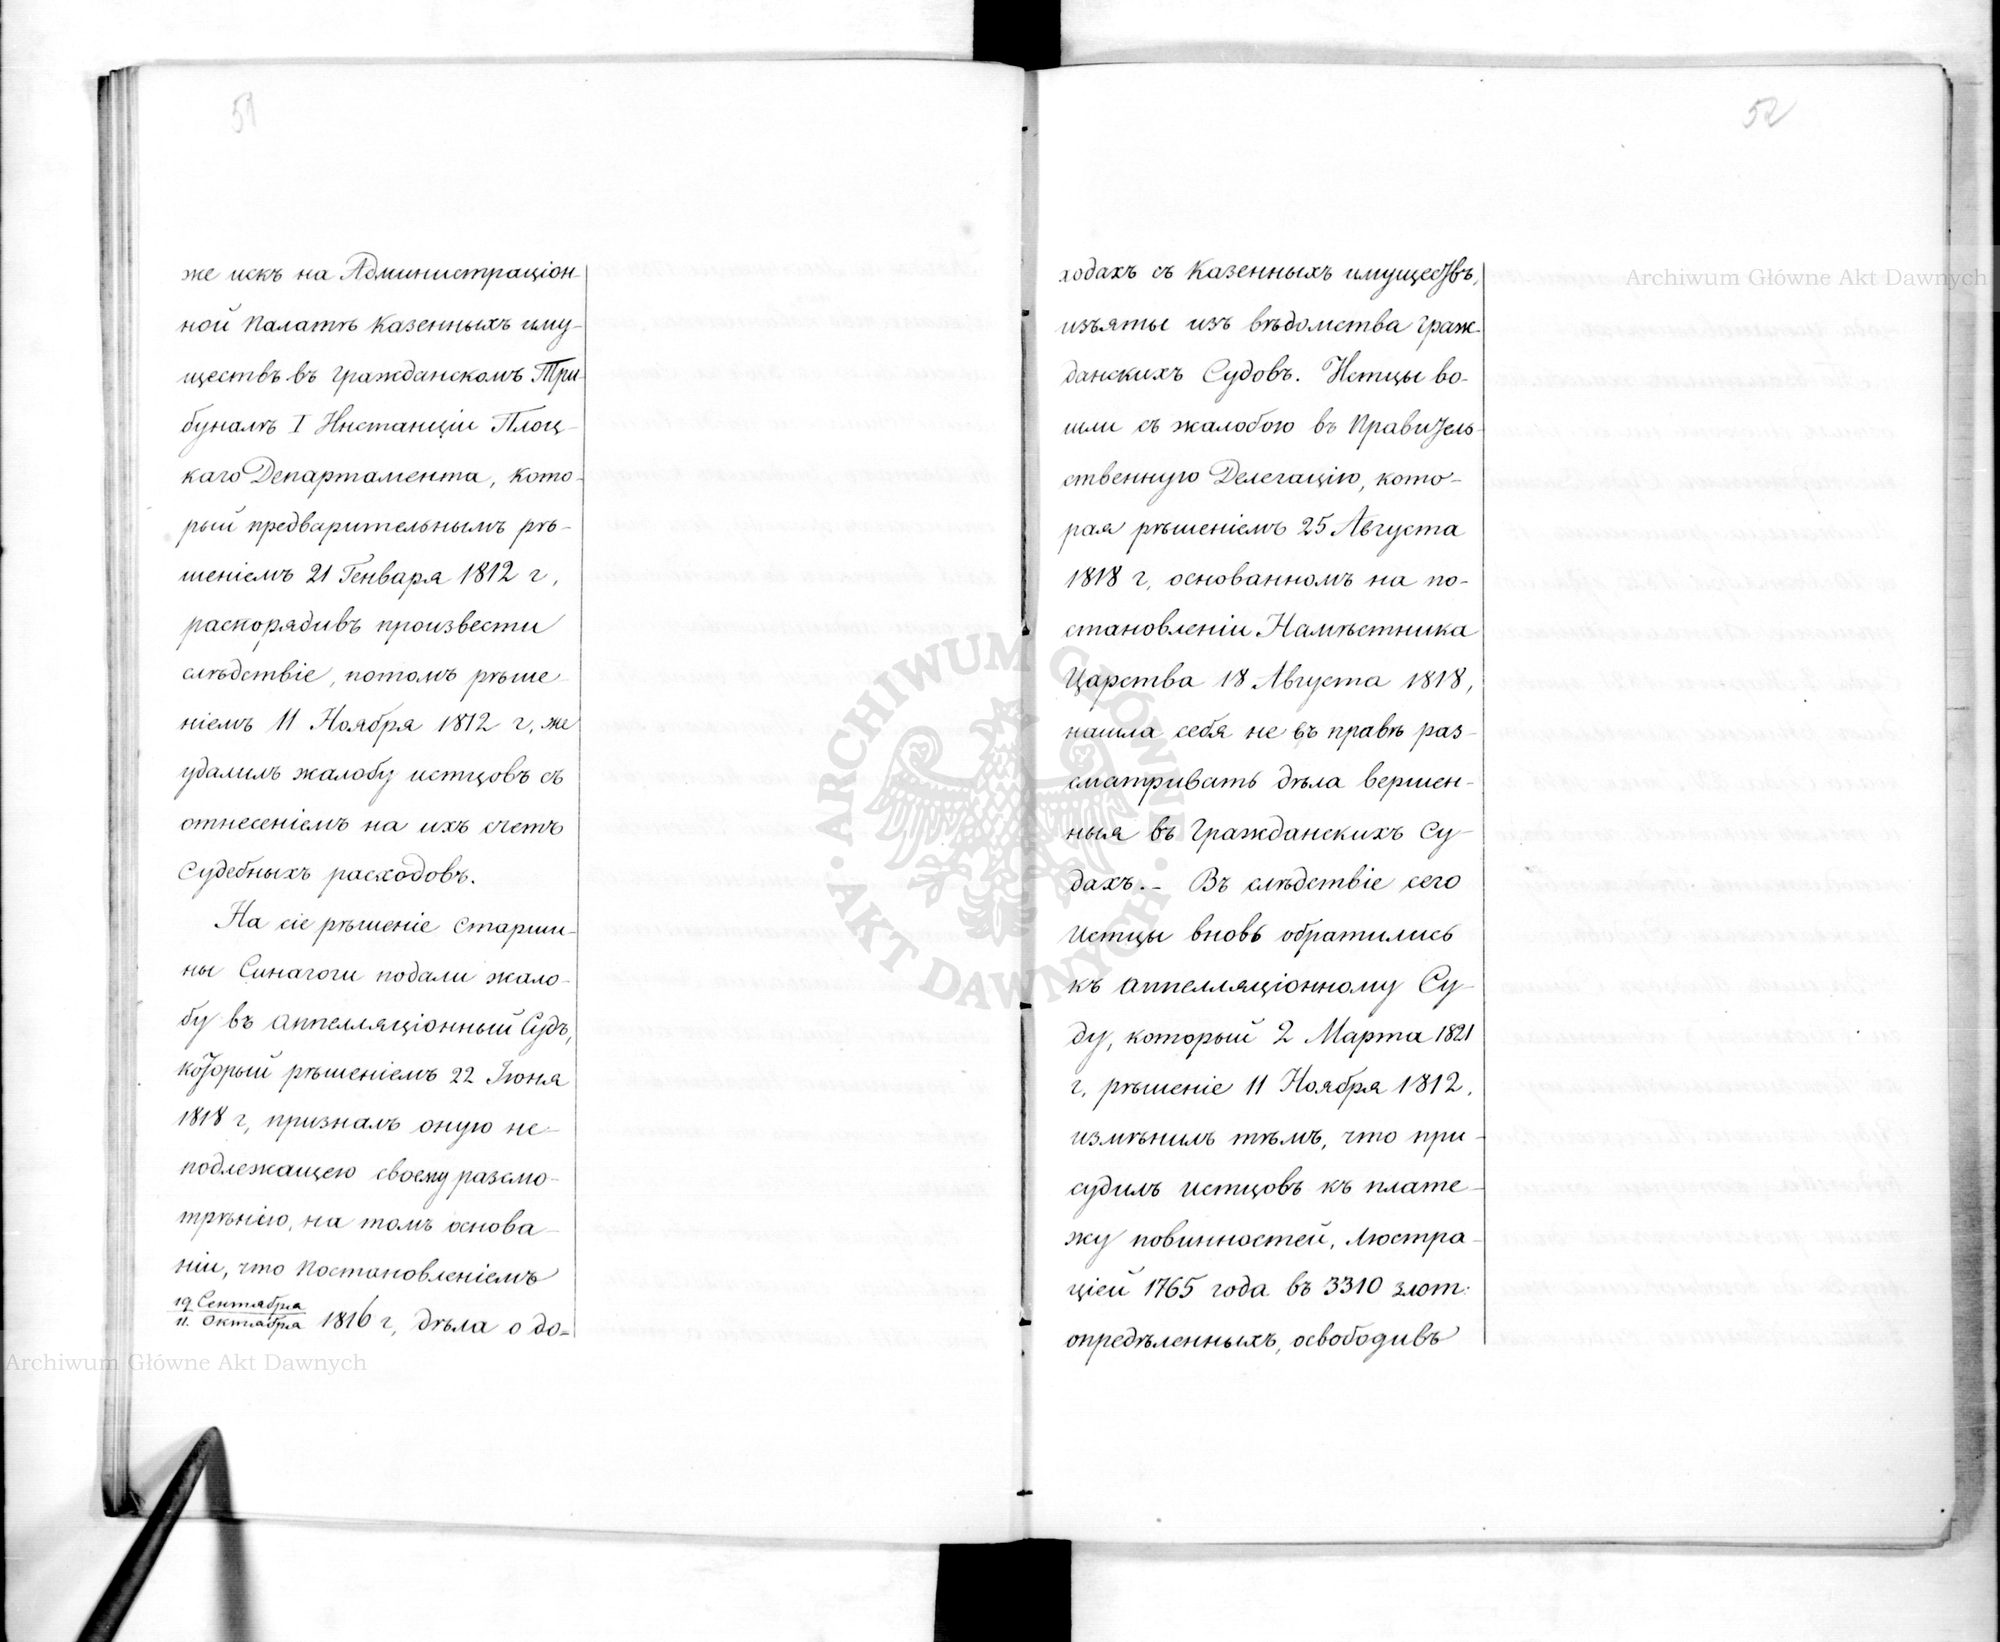 51
же искъ на Администраціон-
ной Палатѣ Казенныхъ иму-
ществъ въ Гражданскомъ Три-
буналѣ I Инстанціи Плоц-
каго Департамента, кото-
рый предварительнымъ рѣ-
шеніемъ 21 Генваря 1812 г.,
распорядивъ произвести
слѣдствіе, потомъ рѣше-
ніемъ 11 Ноября 1812 г. же
удалилъ жалобу истцовъ съ
отнесеніемъ на ихъ счетъ
судебныхъ расходовъ.
На сіе рѣшеніе Старши-
ны Синагоги подали жало-
бу въ Аппелляціонный Судъ,
который рѣшеніемъ 22 Іюня
1818 г, призналъ оную не-
подлежащею своему разсмо-
трѣнію, на томъ основа-
ніи, что Постановленіемъ
19 Сентября
11. Октября 1816 г, дѣла о до-
52
ходахъ съ Казенныхъ имуществъ,
изъяты изъ вѣдомства Граж-
данскихъ Судовъ. Истцы во-
шли съ жалобою въ Правитель-
ственную Делегацію, кото-
рая рѣшеніемъ 25 Августа
1818 г, основанномъ на по-
становленіи Намѣстника
Царства 18 Августа 1818,
нашла себя не въ правѣ раз-
сматривать дѣла вершен-
ныя въ Гражданскихъ Су-
дахъ.- Въ слѣдствіе сего
Истцы вновь обратились
къ Аппелляціонному Су-
ду, который 2 Марта 1821
г, рѣшеніе 11 Ноября 1812,
измѣнилъ тѣмъ, что при-
судилъ истцовъ къ плате-
жу повинностей, люстра-
ціей 1765 года въ 3310 злот:
опредѣленныхъ, освободивъ
ARCHIWUM GŁÓWNE AKT DAWNYCH
Archiwum Główne Akt Dawnych
Archiwum Główne Akt Dawnych